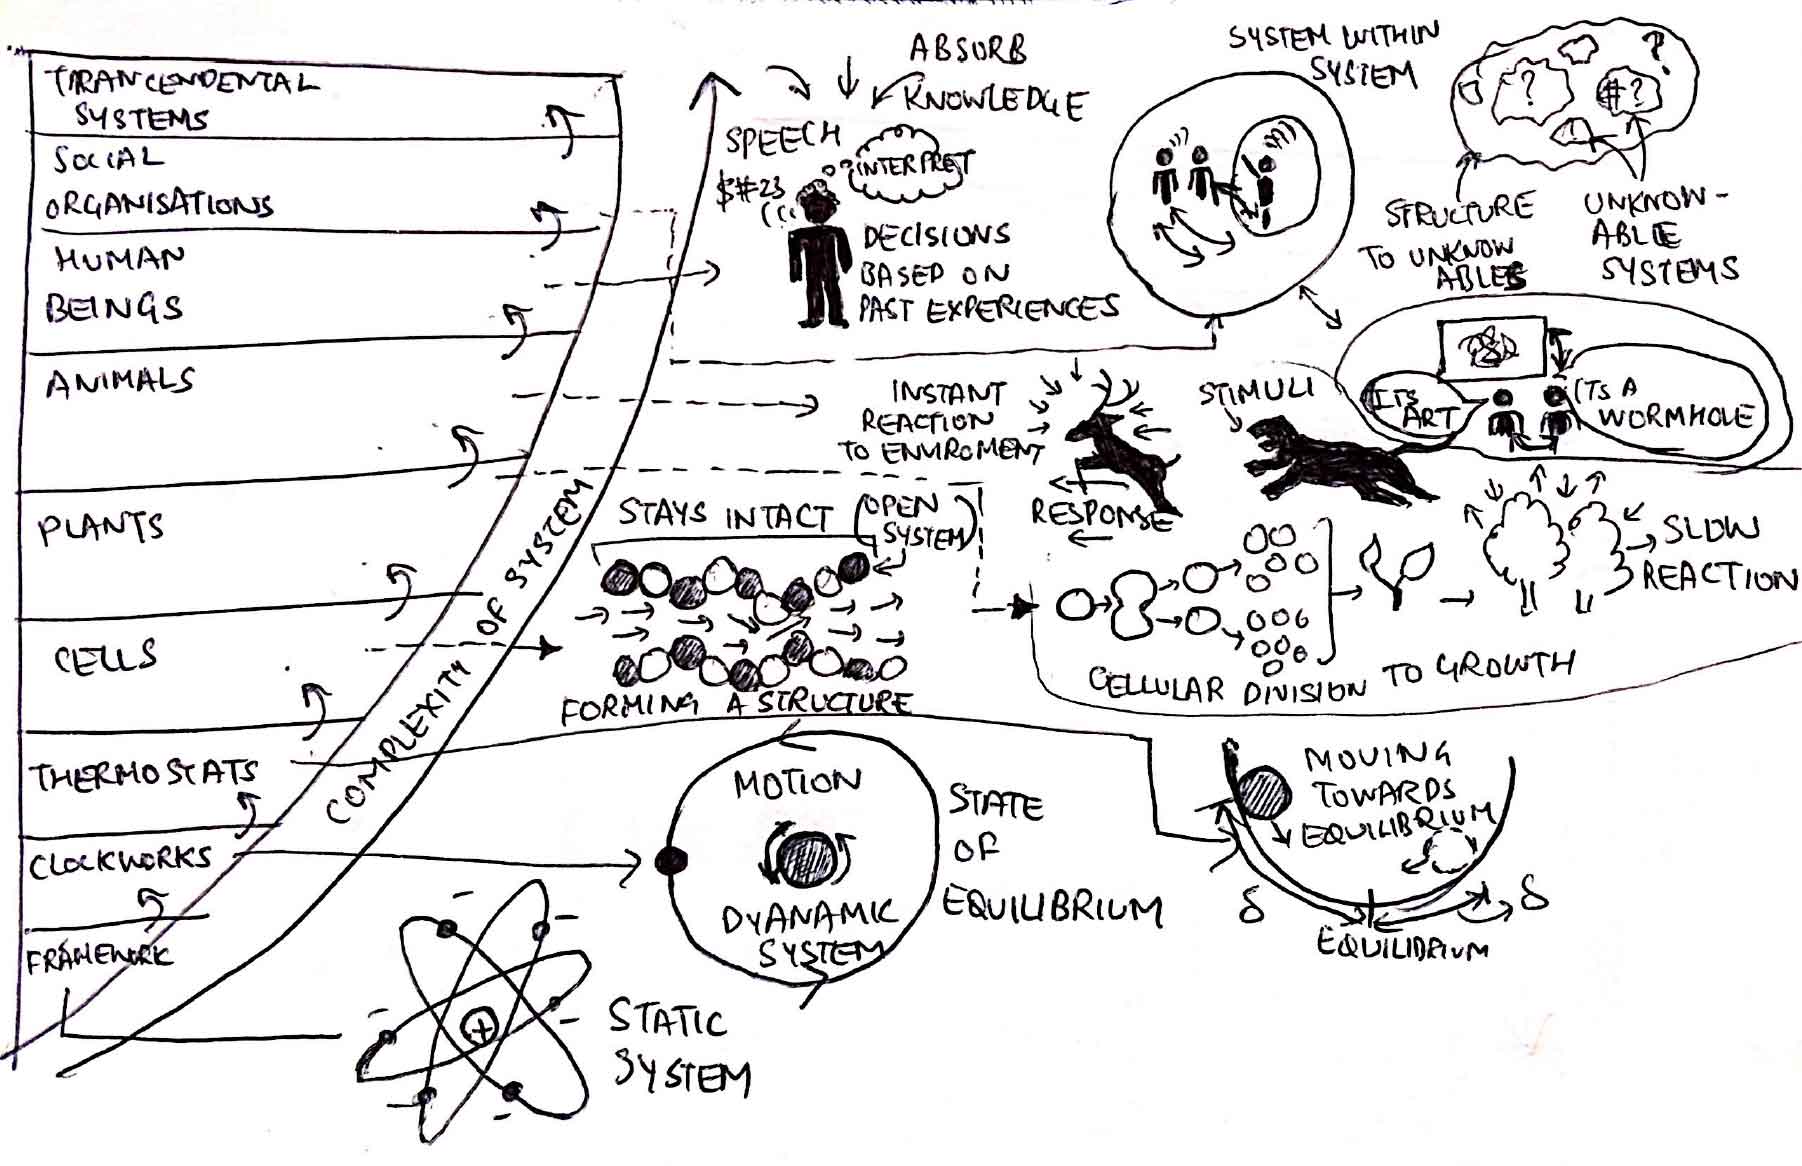 TRANCENDENTAL
SYSTEMS
SOCIAL
ORGANISATIONS
HUMAN
BEINGS
ANIMALS
PLANTS
CELLS
THERMOSTATS
CLOCKWORKS
FRAMEWORK
COMPLEXITY OF SYSTEM
ABSORB
KNOWLEDGE
SPEECH
$#23
INTERPRET
DECISIONS
BASED ON
PAST EXPERIENCES
SYSTEM WITHIN
SYSTEM
?
#?
?
STRUCTURE
TO UNKNOW
ABLES
UNKNOW-
ABLE
SYSTEMS
ITS
ART
ITS A
WORMHOLE
INSTANT
REACTION
TO ENVIROMENT
STIMULI
RESPONSE
STAYS INTACT
(OPEN
SYSTEM)
FORMING A STRUCTURE
SLOW
REACTION
CELLULAR DIVISION TO GROWTH
MOTION
DYANAMIC
SYSTEM
STATE
OF
EQUILIBRIUM
MOVING
TOWARDS
EQUILIBRIUM
δ
δ
EQUILIBRIUM
+
STATIC
SYSTEM